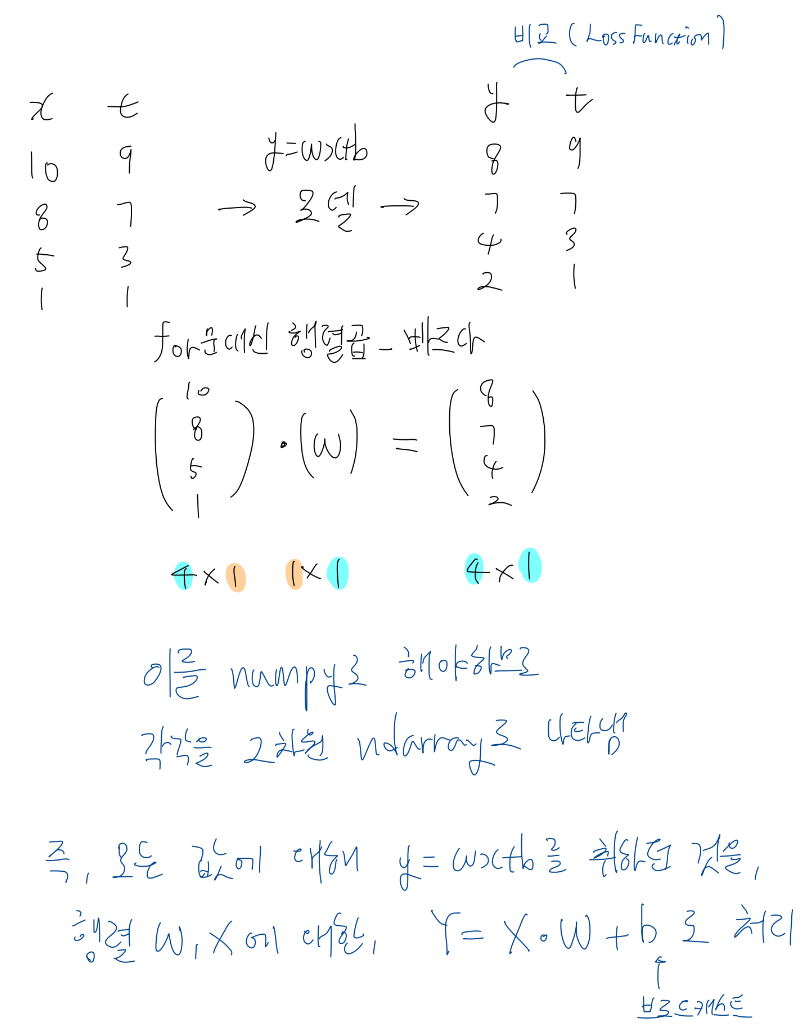 비교 (Loss Function)
x t y t
10 9 y=wx+b 8 9
8 7 → 모델 → 7 7
5 3 4 3
1 1 2 1
for문 대신 행렬곱 - 빠르다
10 8
8 7
5 · (w) = 4
1 2
4 x 1 1 x 1 4 x 1
이를 numpy로 해야하므로
각각을 2차원 ndarray로 나타냄
즉, 모든 값에 대해 y=wx+b를 취하던 것을,
행렬 W, X에 대한, Y = X • W + b 로 처리
↑
브로드캐스트